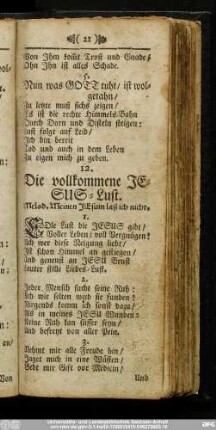 ( 21 )
Von Ihm kömt Trost und Gnade/
Ohn Ihn ist alles Schade.
5.
Nun was GOTT thut/ ist wol-
gethan/
Zu letzt muß sichs zeigen/
Es ist die rechte Himmels-Bahn
Durch Dorn und Disteln steigen:
Lust folgt auf Leid/
Ich bin bereit
Tod und auch in dem Leben
Zu eigen mich zu geben.
12.
Die vollkommene JE-
SUS-Lust.
Melod. Meinen JEsum laß ich nicht.
1.
EDle Lust die JESUS gibt/
Voller Leben/ voll Vergnügen!
Ich wer diese Neigung liebt/
Ist schon Himmel an gestiegen/
Und geneust an JESU Brust
lauter stille Liebes-Lust.
2.
Jeder Mensch sucht seine Ruh:
Ich wie selten wird sie funden!
Nirgends komm ich sonst dazu/
Als in meines JESU Wunden:
Keine Ruh kan süsser seyn/
Sie befreyt von aller Pein.
3.
Nehmt mir alle Freude hin/
Jaget mich in eine Wüsten/
Gebt mir Gift vor Medicin/
Und